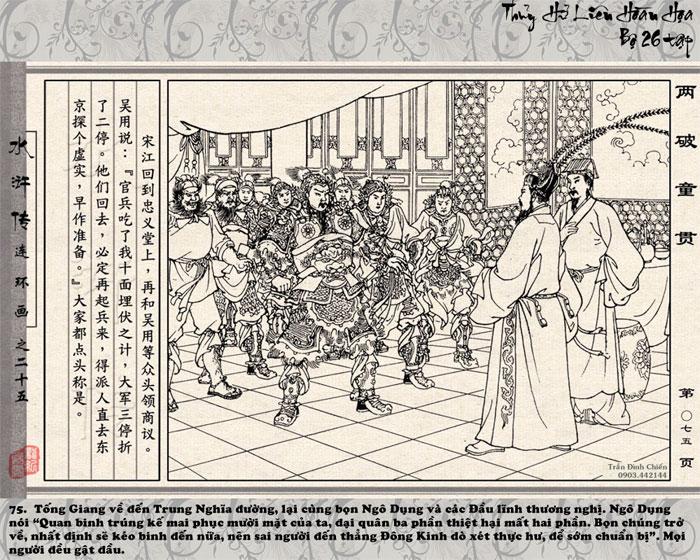 Thủy Hử Liên Hoàn Họa
Bộ 26 tập
两破童贯
第〇七五页
宋江回到忠义堂上，再和吴用等众头领商议。
吴用说：『官兵吃了我十面埋伏之计，大军三停折
了二停。他们回去，必定再起兵来，得派人直去东
京探个虚实，早作准备。』大家都点头称是。
水浒传连环画之二十五
Trần Đình Chiến
0903.442144
75. Tống Giang về đến Trung Nghĩa đường, lại cùng bọn Ngô Dụng và các Đầu lĩnh thương nghị. Ngô Dụng
nói "Quan binh trúng kế mai phục mười mặt của ta, đại quân ba phần thiệt hại mất hai phần. Bọn chúng trở
về, nhất định sẽ kéo binh đến nữa, nên sai người đến thẳng Đông Kinh dò xét thực hư, để sớm chuẩn bị". Mọi
người đều gật đầu.